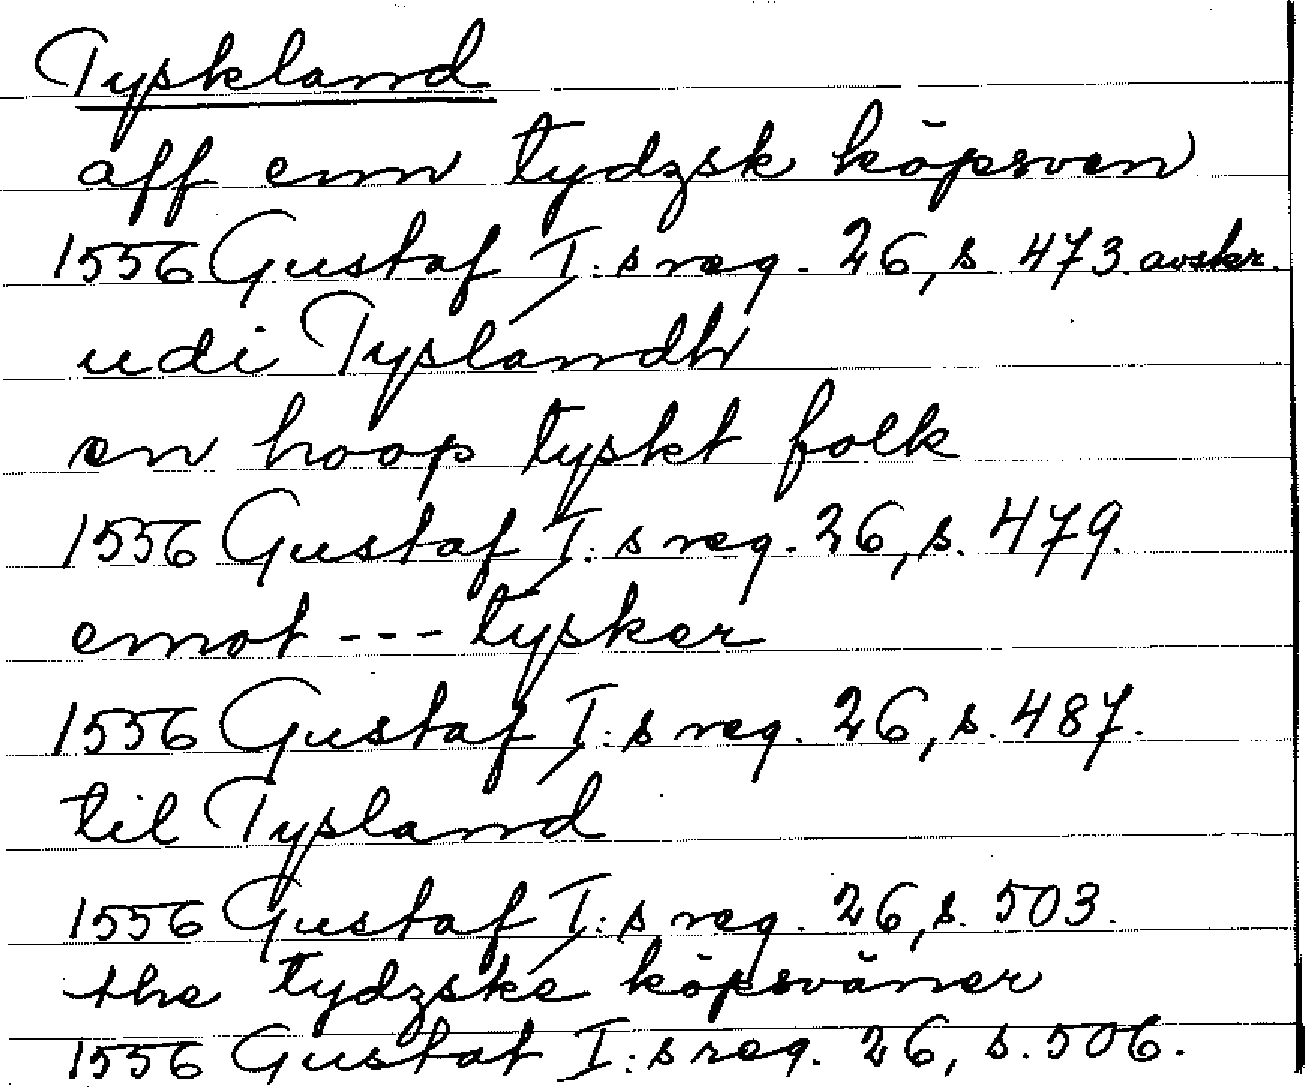 Tyskland
aff enn tydzsk köpsven
1556 Gustaf I:s reg. 26, s. 473. avskr.
udi Tyslandh
en hoop tyskt folk
1556 Gustaf I:s reg. 26, s. 479.
emot --- tysker
1556 Gustaf I:s reg. 26, s. 487.
til Tysland
1556 Gustaf I:s reg. 26, s. 503.
the tydzske köpsväner
1556 Gustaf I:s reg. 26, s. 506.